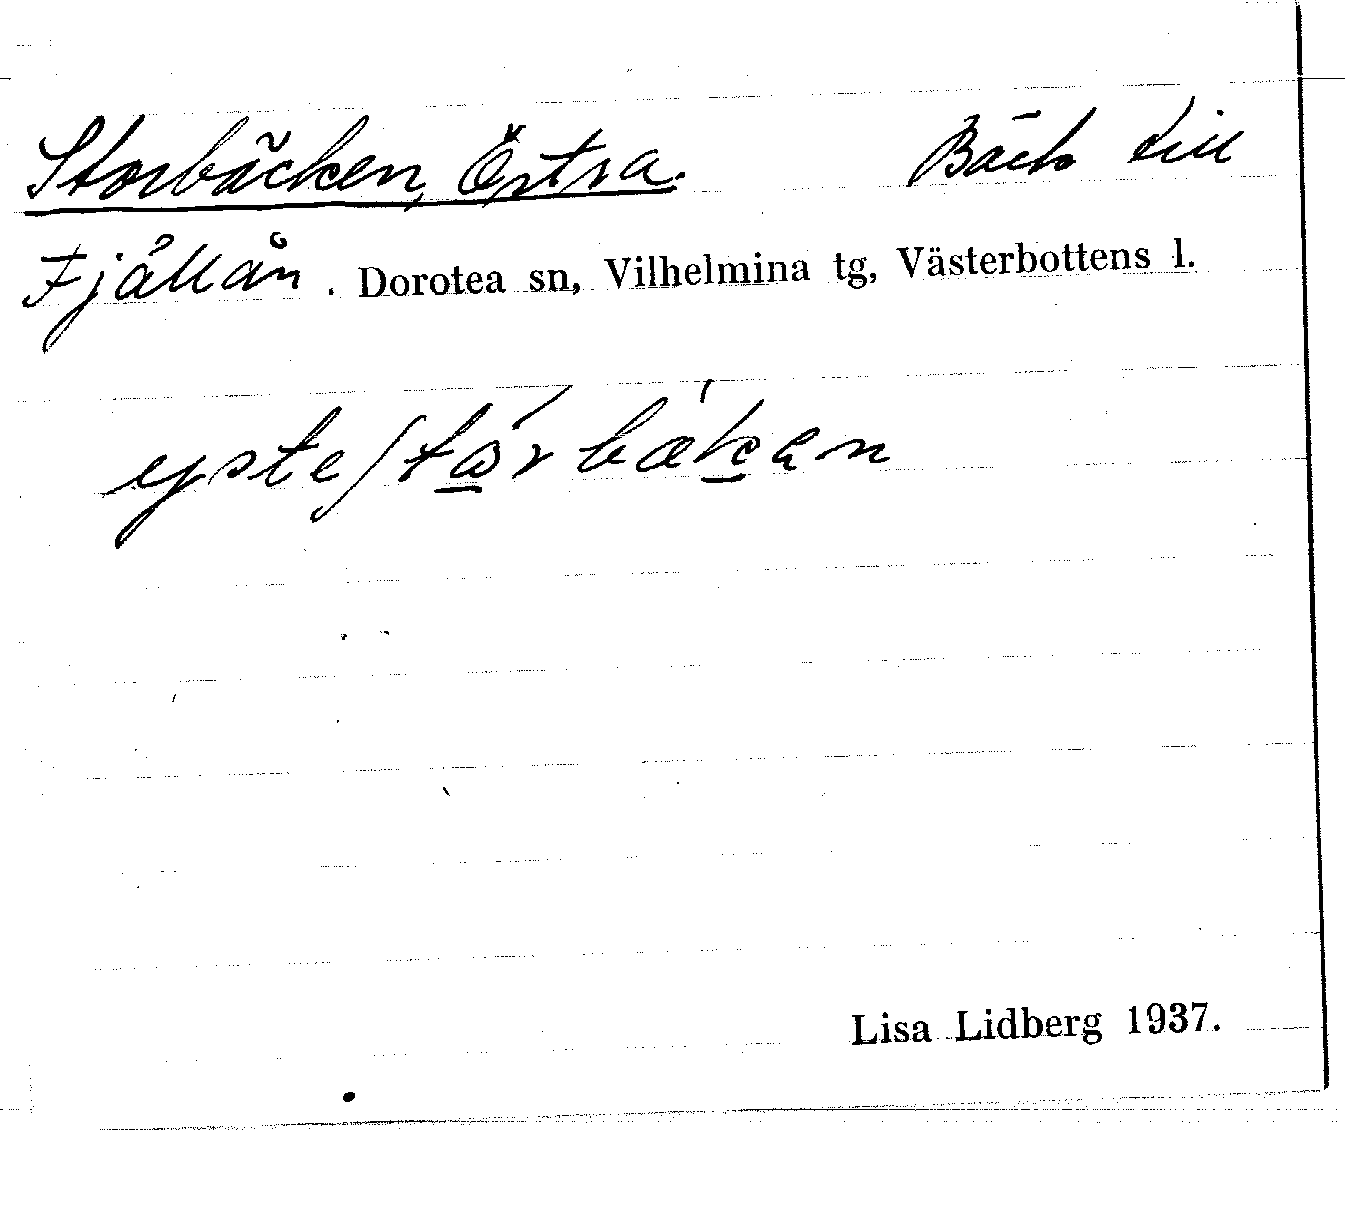 Storbäcken, Östra. Bäck till
Fjällån. Dorotea sn, Vilhelmina tg, Västerbottens l.
Lisa Lidberg 1937.